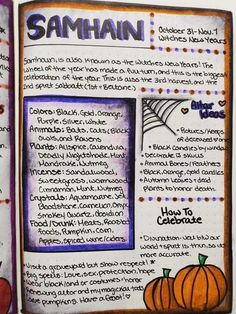 SAMHAIN
October 31-Nov. 1
Witches New Years
Samhain, is also known as the Witches New Years! The
wheel of the year has made a full turn, and this is the biggest
celebration of the year. This is also the 3rd harvest, and the
1st spirit Sabbat! (1st = Beltane.)
Colors: Black, Gold, Orange,
Purple, Silver, White
Animals: Bats, Cats, (Black)
owls and Ravens
Plants: Allspice, Calendula,
Deadly Nightshade, Mint
Mandrake, Nutmeg
Incense: Sandalwood,
Sweetgrass, wormwood
Cinnamon, Mint, Nutmeg
Crystals: Aquamarine,
Bloodstone, Carnelian, Onyx
Smokey Quartz, obsidian
Food/Drink: Meats, Roasted
foods, Pumpkin, Corn,
Apples, Spiced wine/ciders
Altar
Ideas
Pictures/Items
of deceased
Black Candles by
Decorate
Animal Bones/Feathers
Black, Orange, Gold Candles
Autumn Leaves + dead
plants to honor death
How To
Celebrate
Divination! Veil b/w our
world + spirit is thin, so its
more accurate.
Visit a graveyard but show respect!
Big spells: Love, sex, protection, hope
wear black/gold/or costumes + honor
altar and my magickal tools
pumpkins. Have a feast!